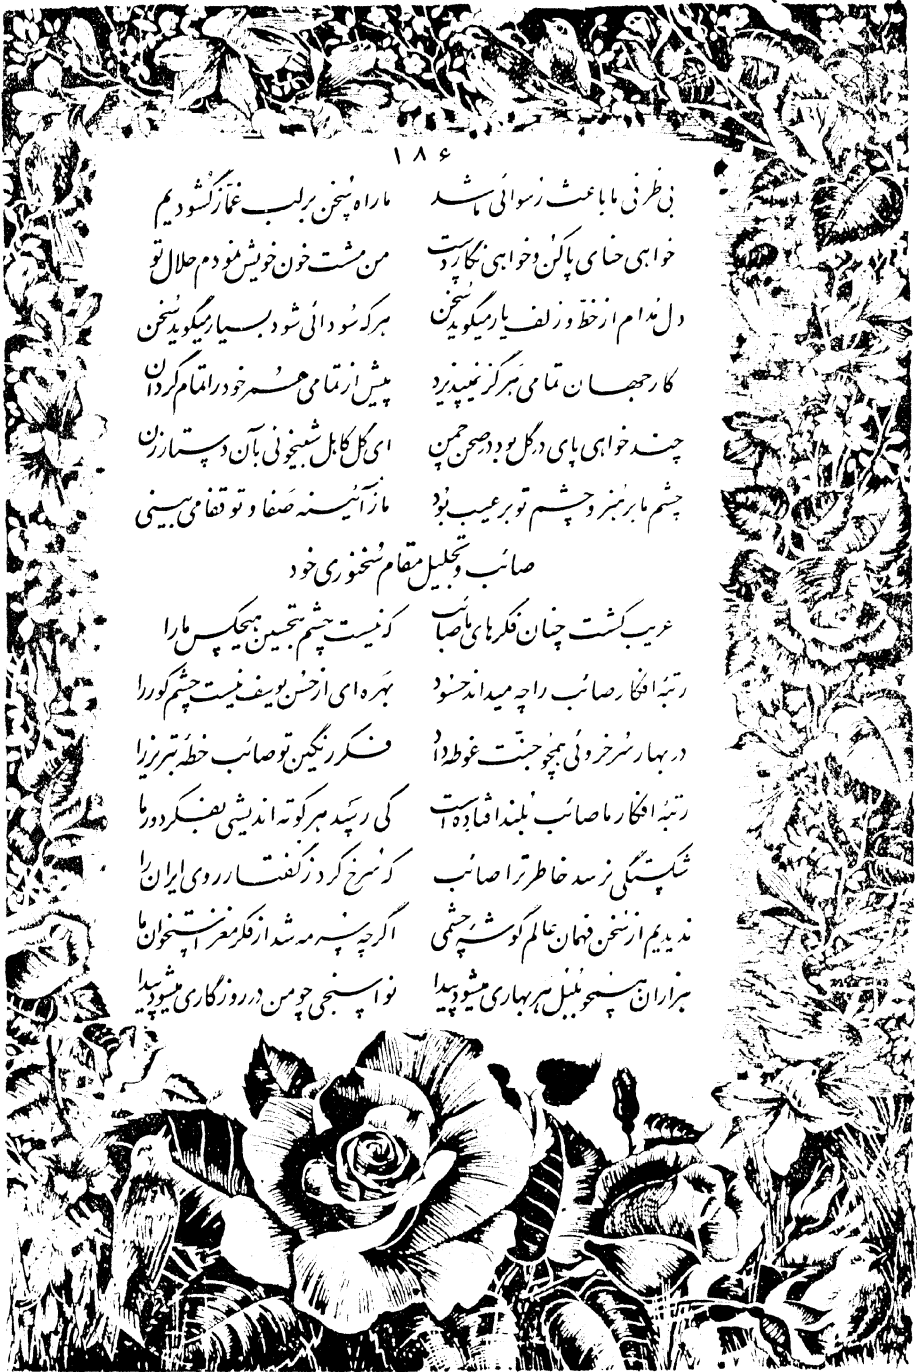 ۱۸۶
بی ظرفی ما باعث رسوائی ما شد ما راه سخن بر لب غماز گشودیم
خواهی حنای پا کن و خواهی نگار دست من مشت خون خویش نمودم حلال تو
دل مدام از خط و زلف یار میگوید سخن هر که سودائی شود بسیار میگوید سخن
کار جهان تمامی هرگز نمیپذیرد پیش از تمامی عمر خود را تمام گردان
چند خواهی پای در گل بود در صحن چمن ای گل کابل شبیخونی بآن دستار زن
چشم ما بر هنر و چشم تو بر عیب بود ما ز آئینه صفا و تو قفا می بینی
صائب و تجلیل مقام سخنوری خود
غریب گشت چنان فکرهای ما صائب که نیست چشم بتحسین هیچکس ما را
رتبه افکار صائب را چه میداند حسود بهره ای از حسن یوسف نیست چشم کور را
در بهار سرخروئی همچو جنت غوطه داد فکر رنگین تو صائب خطه تبریز را
رتبه افکار ما صائب بلند افتاده است کی رسد هر کوته اندیشی بفکر دور ما
شکستگی نرسد خاطر ترا صائب که سرخ کرد ز گفتار روی ایران را
ندیدیم از سخن فهمان عالم گوشه چشمی اگرچه سرمه شد از فکر مغز استخوان ما
هزاران همچو بلبل هر بهاری میشود پیدا نواسنجی چو من در روزگاری میشود پیدا